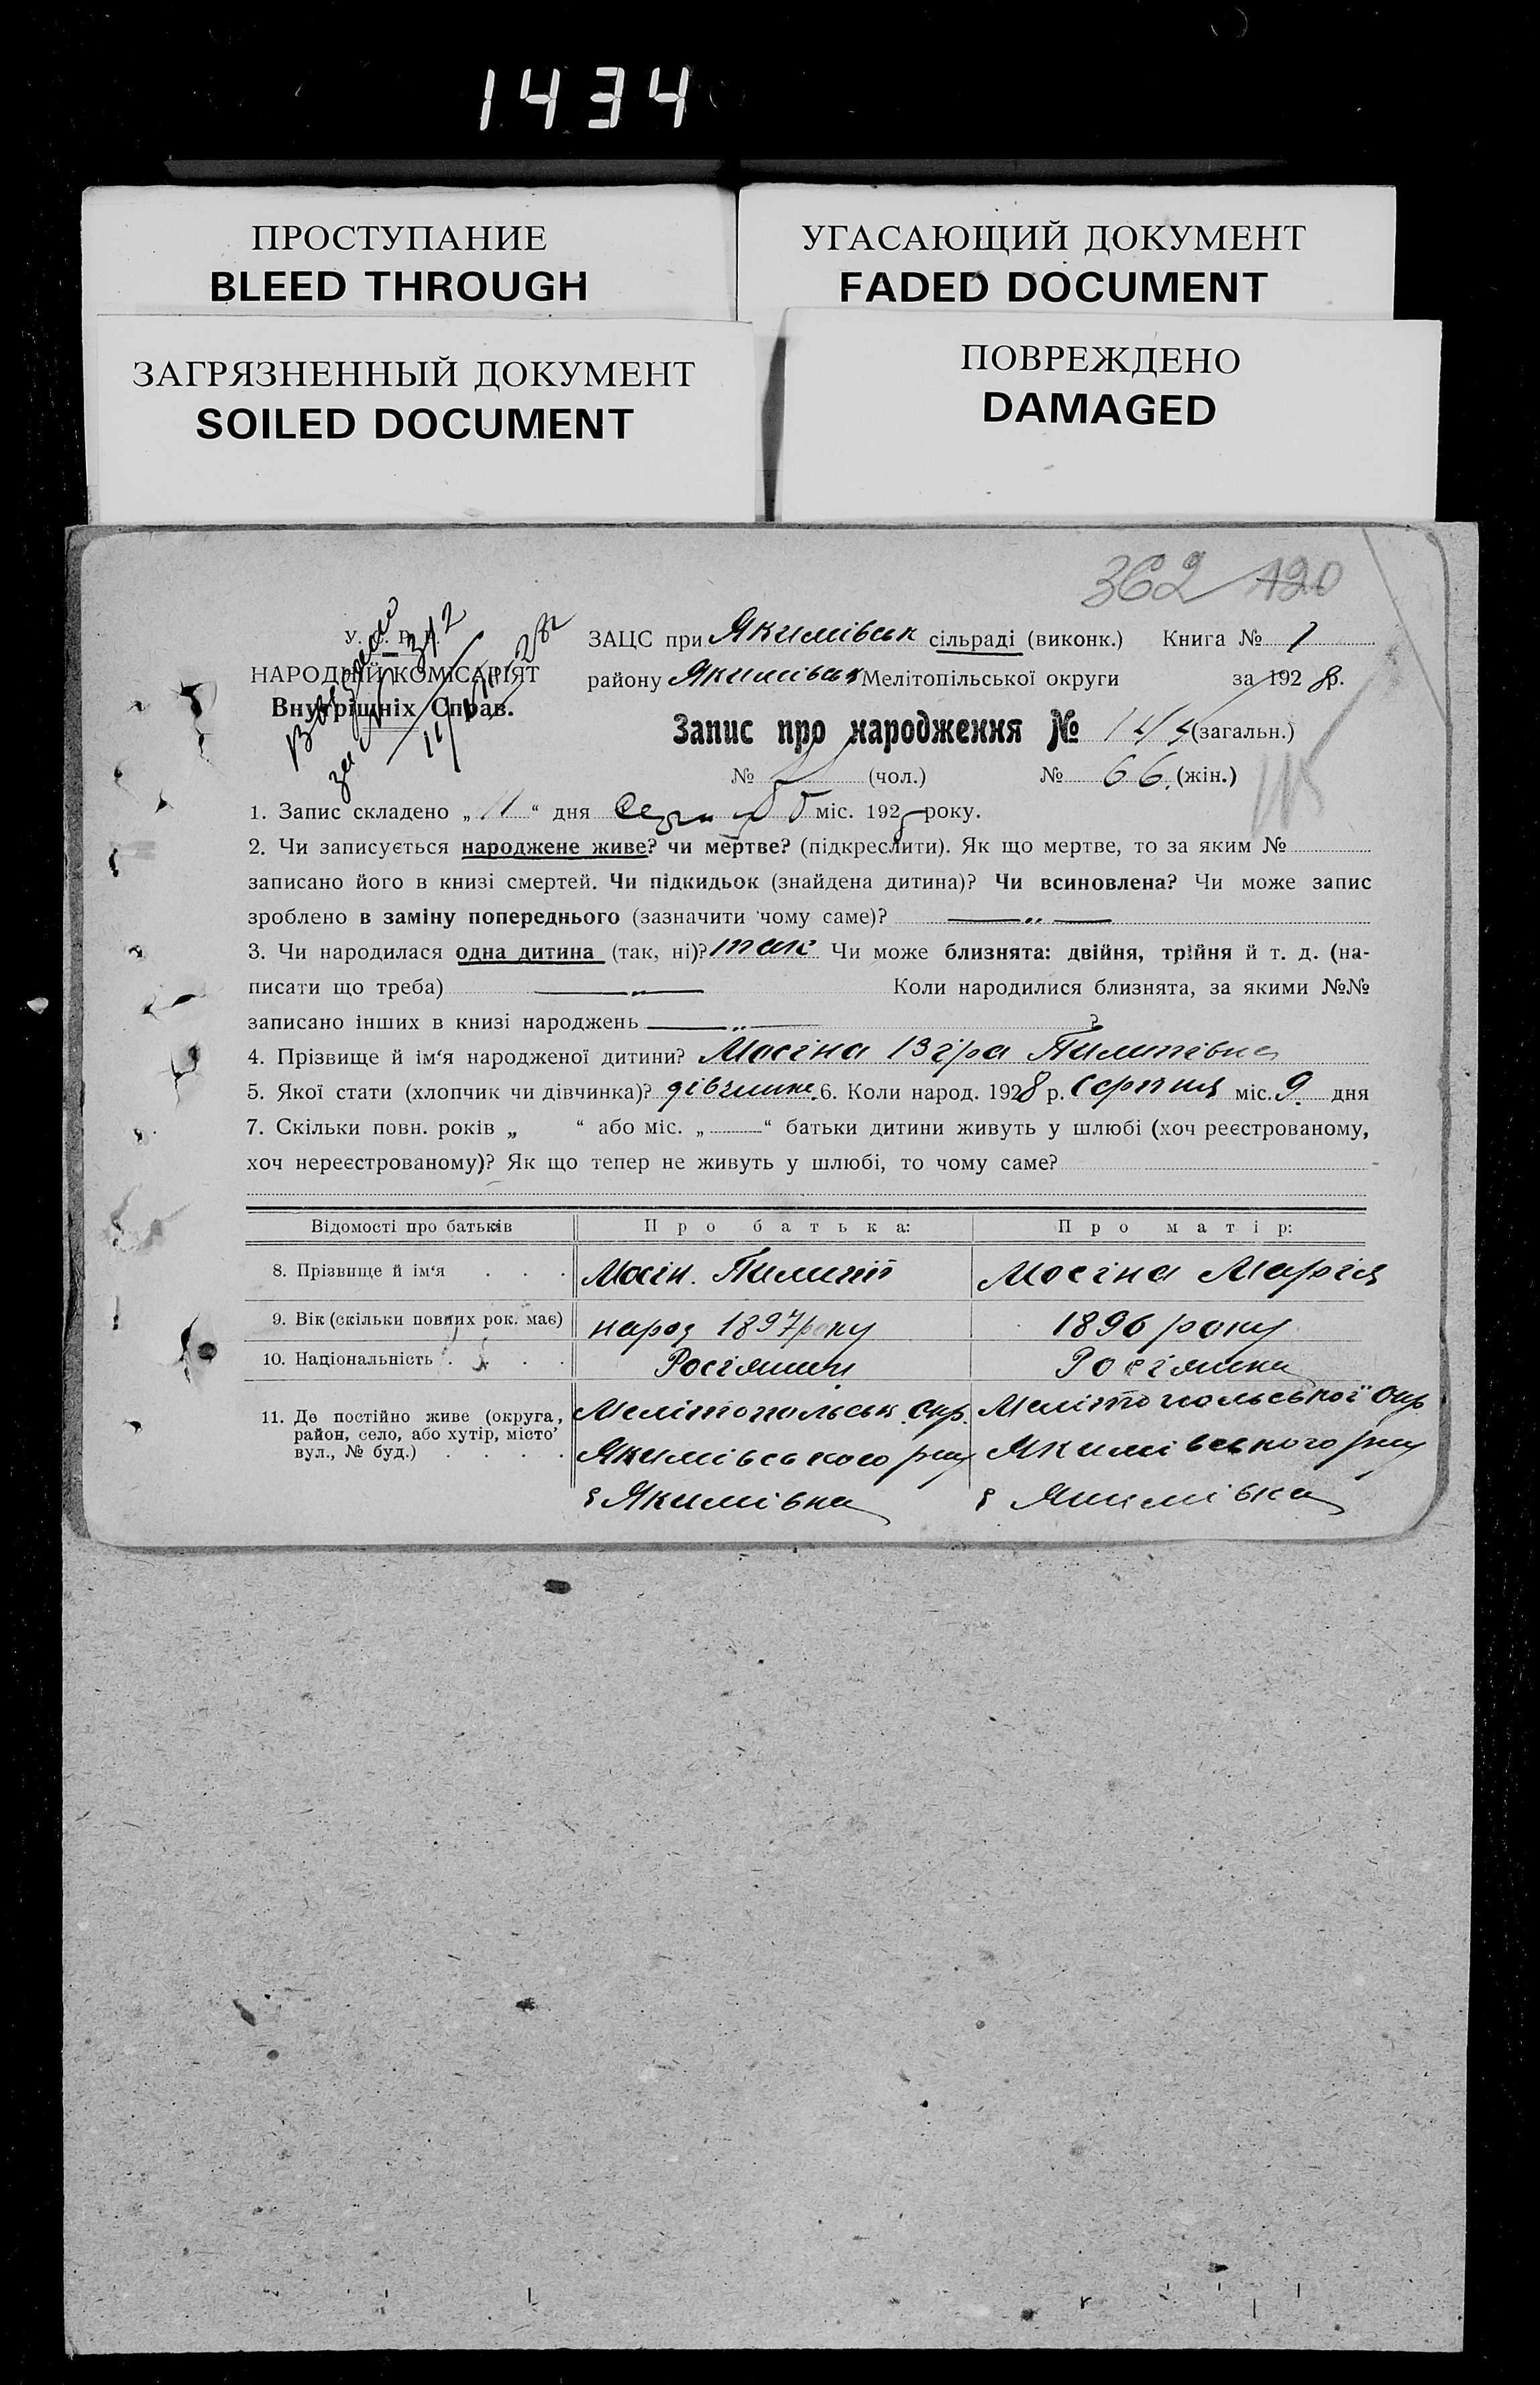 1434
ПРОСТУПАНИЕ
BLEED THROUGH
УГАСАЮЩИЙ ДОКУМЕНТ
FADED DOCUMENT
ЗАГРЯЗНЕННЫЙ ДОКУМЕНТ
SOILED DOCUMENT
ПОВРЕЖДЕНО
DAMAGED
362 120
У. С. Р. Р.
НАРОДНІЙ КОМІСАРІЯТ
Внутрішніх Справ.
ЗАЦС при Якимівськ сільраді (виконк.) Книга № 1
району Якимівськ Мелітопільської округи за 1928 р.
Запис про народження № (загальн.)
№ (чол.) № 66 (жін.)
1. Запис складено „ 11 “ дня міс. 1928 року.
2. Чи записується народжене живе? чи мертве? (підкреслити). Як що мертве, то за яким №
записано його в книзі смертей. Чи підкидьок (знайдена дитина)? Чи всиновлена? Чи може запис
зроблено в заміну попереднього (зазначити чому саме)? — „ —
3. Чи народилася одна дитина (так, ні)? так Чи може близнята: двійня, трійня й т. д. (на-
писати що треба) — „ — Коли народилися близнята, за якими №№
записано інших в книзі народжень — „ — ?
4. Прізвище й ім‘я народженої дитини? Мосіна Віра Пилипівна
5. Якої стати (хлопчик чи дівчинка)? дівчинка. 6. Коли народ. 1928 р. серпня міс. 9. дня
7. Скільки повн. років „ “ або міс. „ — “ батьки дитини живуть у шлюбі (хоч реєстрованому,
хоч нереєстрованому)? Як що тепер не живуть у шлюбі, то чому саме?
Відомості про батьків Про батька: Про матір:
8. Прізвище й ім‘я . . . Мосін. Пилипп Мосіна Марія
9. Вік (скільки повних рок. має) народ 1897 року 1896 року
10. Національність . . . . Росіянин Росіянка
11. Де постійно живе (округа, Мелітопольськ. Окр. Мелітопольської Окр
район, село, або хутір, місто’
вул., № буд.) . . . . Якимівського р-ну Якимівського р-ну
с Якимівка с Якимівка